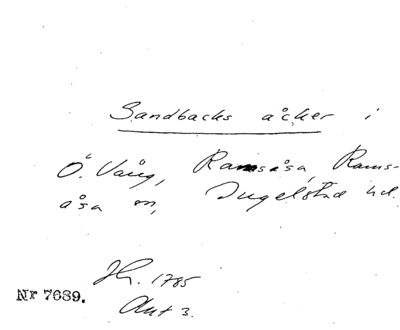 Sandbacks åcker i
Ö. Vång, Ramsåsa, Rams-
åsa sn, Ingelstad hd.
Hr. 1785
Akt 3.
Nr 7689.